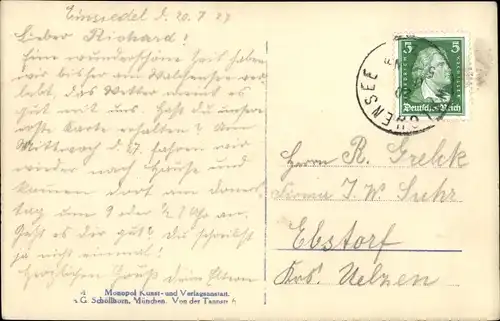 Einsiedel d. 20.7.27
Lieber Richard!
Eine wunderschöne Zeit haben
wir bisher am Walchensee ver=
lebt, das Wetter meint es
gut mit uns. Hast du unsere
erste Karte erhalten? Am
Mittwoch d. 27. fahren wir
wieder nach Hause und
kommen dort am Donners
tag um 9 oder 1/2 7 Uhr an.
Geht es dir gut? Du schreibst
ja nicht einmal!
Herzlichen Gruß dein Eltern
Monopol Kunst- und Verlagsanstalt
G. Schöllhorn, München, Von der Tannstr. 6
5 5
FRIEDRICH V. SCHILLER
Deutsches Reich
CHENSEE
Herrn R. Grehk
Firma J. W. Suhr
Ebstorf
Krs. Uelzen